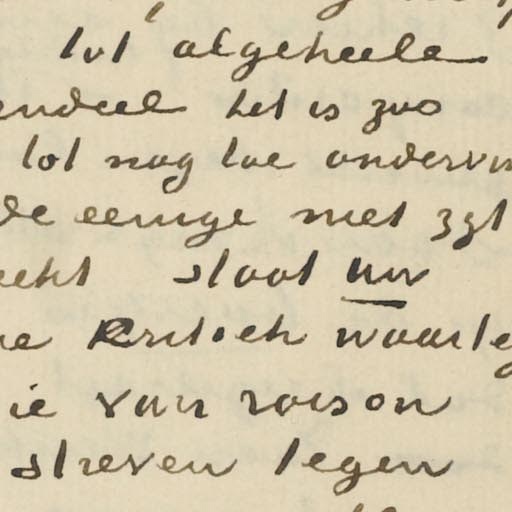 tot algeheele
endeel het is zoo
tot nog toe ondervin
de eenige niet zijt
echt staat uw
ne Kritiek waarte
ie van raison
streven tegen